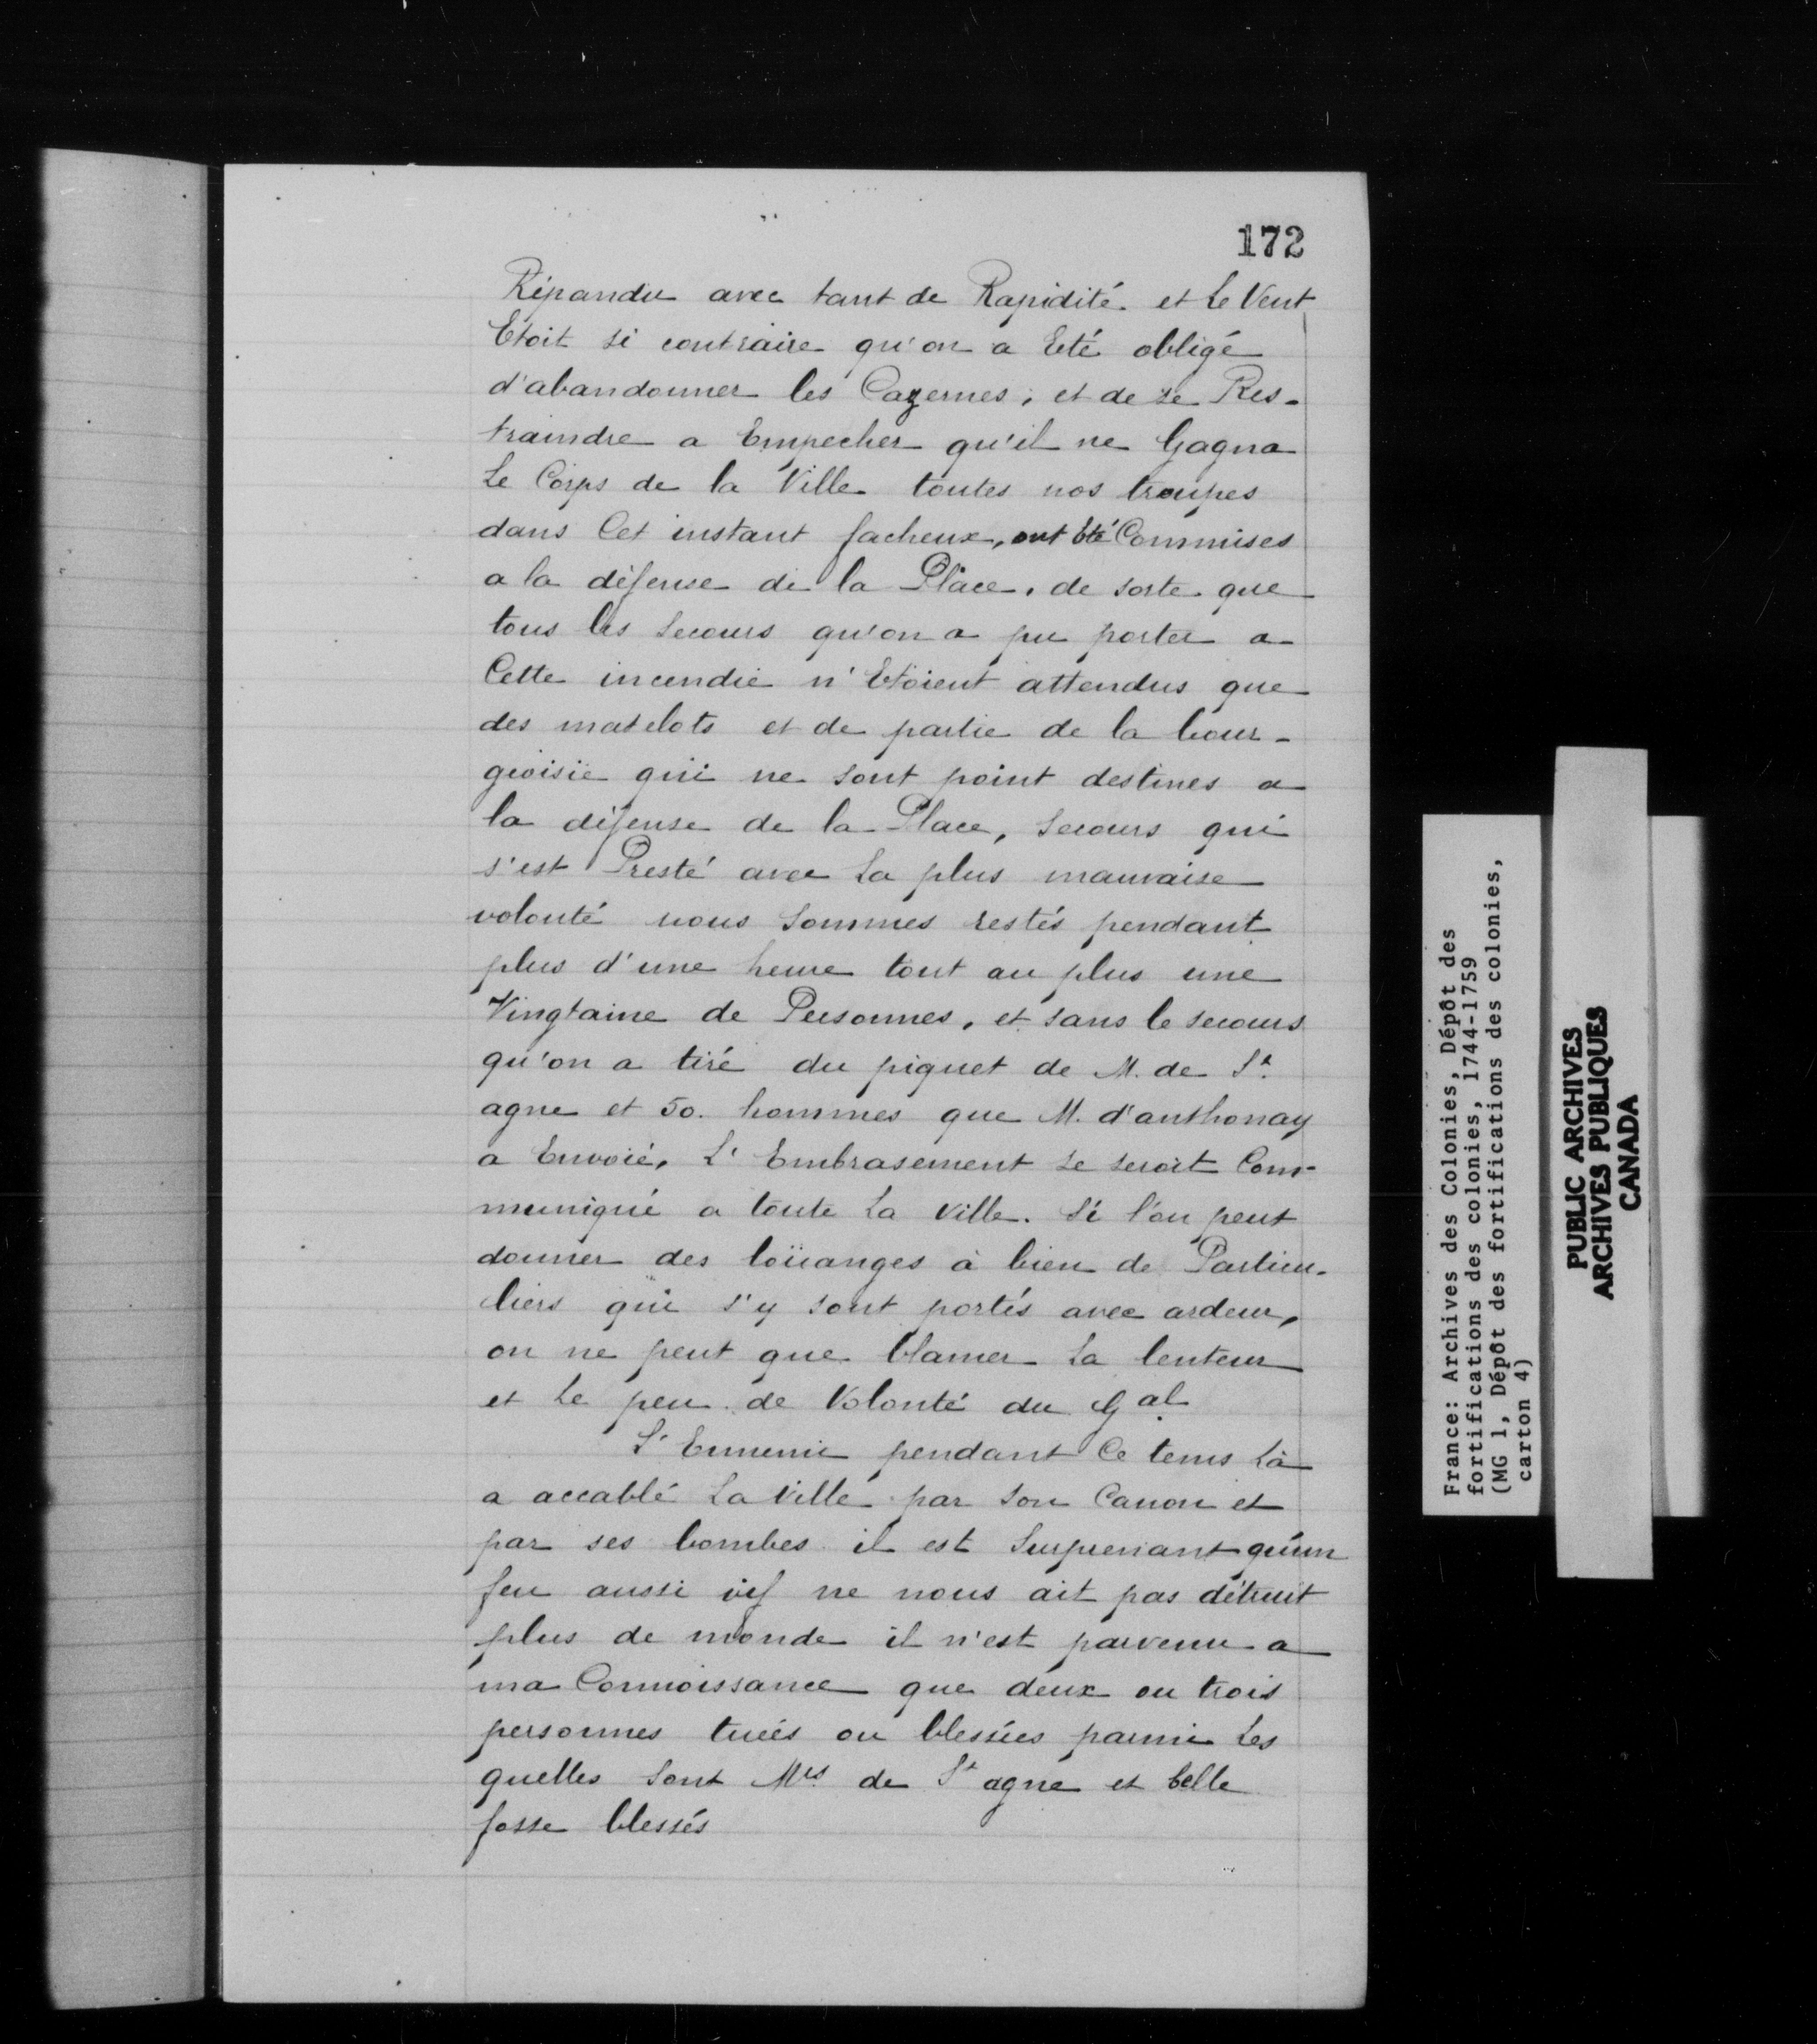 172
Répandu avec tant de Rapidité et Le Vent
Etoit si contraire qu'on a Eté obligé
d'abandonner les Cazernes, et de se Res-
traindre a Empecher qu'il ne Gagna
Le Corps de la Ville toutes nos troupes
dans Cet instant facheux, ont Eté Commises
a la défense de la Place, de sorte que
tous les Secours qu'on a pu porter a
Cette incendie n'Etoient attendus que
des matelots et de partie de la bour-
geoisie qui ne sont point destines a
la défense de la Place, Secours qui
s'est Presté avec La plus mauvaise
volonté nous Sommes restés pendant
plus d'une heure tout au plus une
Vingtaine de Personnes, et sans le secours
qu'on a tiré du piquet de M. de St.
agne et 50. hommes que M. d'anthonay
a Envoié, L'Embrasement se seroit Com-
muniqué a toute La Ville. Si l'on peut
donner des loüanges à bien de Particu-
liers qui s'y sont portés avec ardeur,
on ne peut que blamer La lenteur
et Le peu de Volonté du Gal
L'Ennemi pendant Ce tems Là
a accablé La Ville par Son Canon et
par ses bombes il est Surprenant qu'un
feu aussi vif ne nous ait pas détruit
plus de monde il n'est parvenu a
ma Connoissance que deux ou trois
personnes tuées ou blessées parmi Les
quelles Sont Mrs de St agne et belle
fosse blessés
France: Archives des Colonies, Dépôt des
fortifications des colonies, 1744-1759
(MG 1, Dépôt des fortifications des colonies,
carton 4)
PUBLIC ARCHIVES
ARCHIVES PUBLIQUES
CANADA